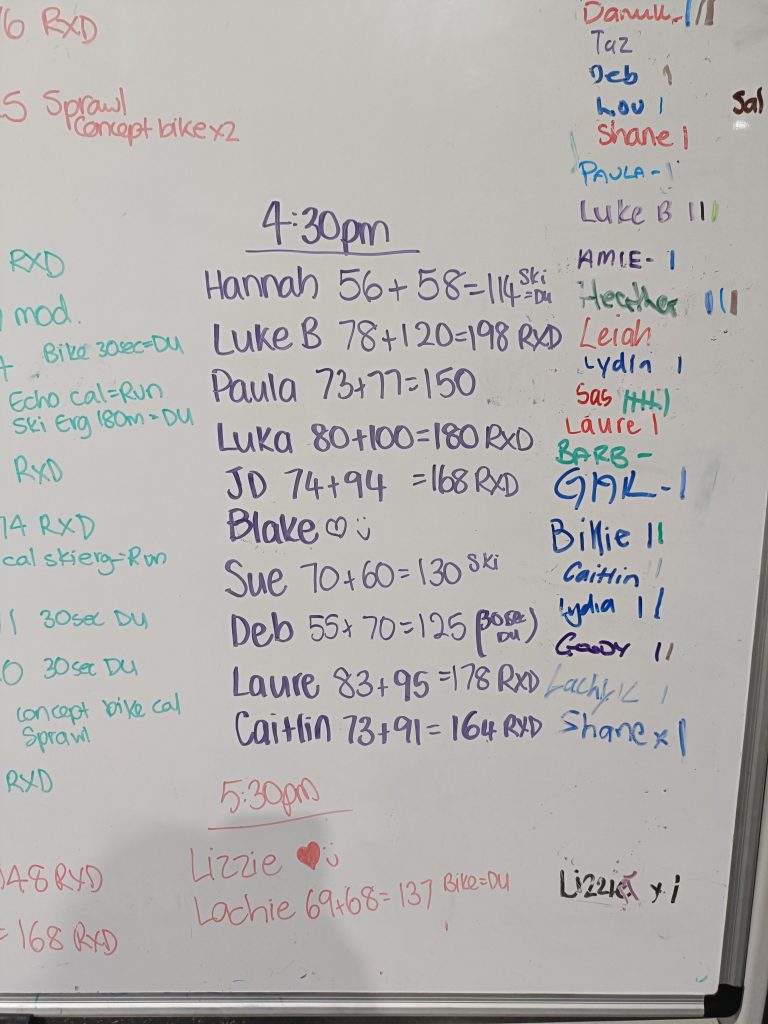 6 RXD
5 Sprawl
Concept bike x2
RXD
mod.
Bike 30sec=DU
Echo cal=Run
Ski Erg 180m=DU
RXD
74 RXD
cal skierg=Run
30sec DU
0 30sec DU
concept bike cal
Sprawl
RXD
148 RXD
= 168 RXD
4:30pm
Hannah 56+58=114 Ski=DU
Luke B 78+120=198 RXD
Paula 73+77=150
Luka 80+100=180 RXD
JD 74+94 =168 RXD
Blake ♡ :)
Sue 70+60=130 Ski
Deb 55+70=125 (30sec DU)
Laure 83+95=178 RXD
Caitlin 73+91=164 RXD
5:30pm
Lizzie ♥ :)
Lachie 69+68=137 Bike=DU
Taz
Deb I
Lou I
Sal
Shane I
PAULA-I
Luke B III
AMIE-I
Heather III
Leiah
Lydia I
Sas
Laure I
BARB-
Billie II
Caitlin II
Lydia II
Goody II
Lachy K I
Shane x I
Lizzie x i